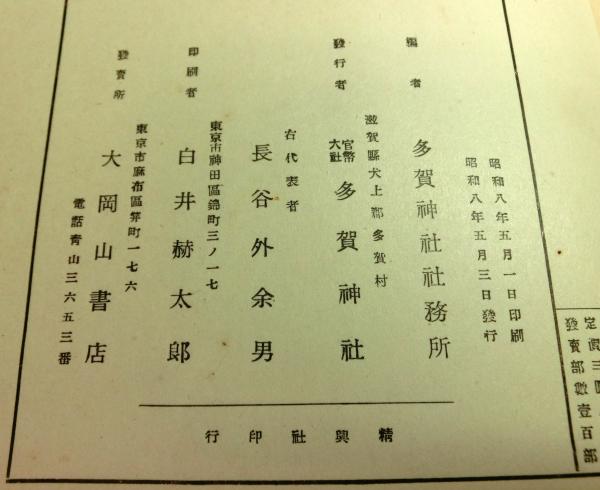 定價三圓
發賣部數壹百部
昭和八年五月一日印刷
昭和八年五月三日發行
編者
多賀神社社務所
滋賀縣犬上郡多賀村
發行者
官幣大社
多賀神社
右代表者
長谷外余男
東京市神田區錦町三ノ一七
印刷者
白井赫太郎
東京市麻布區笄町一七六
發賣所
大岡山書店
電話青山三六五三番
精興社印行